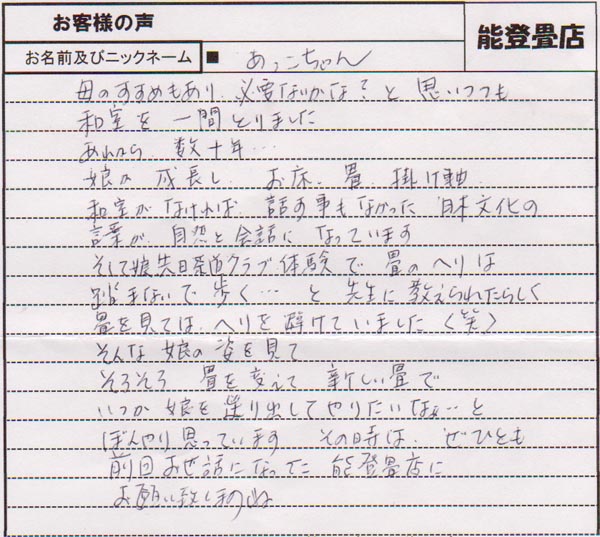 お客様の声
能登畳店
お名前及びニックネーム ■ あっこちゃん
母のすすめもあり、必要ないかな？と 思いつつも
和室を 一間とりました
あれから、数十年…
娘が 成長し、お床、畳、掛け軸、
和室が なければ、話す事もなかった 日本文化の
言葉が、自然と会話に なっています
そして娘先日茶道クラブ体験で 畳のへりは
踏まないで 歩く… と 先生に 教えられたらしく
畳を見ては へりを 避けていました（笑）
そんな 娘の 姿を見て
そろそろ 畳を変えて 新しい畳で
いつか 娘を 送り出して やりたいなぁ…と
ぼんやり思っています その時は、ぜひとも
前回お世話になった 能登畳店に
お願い致しますね